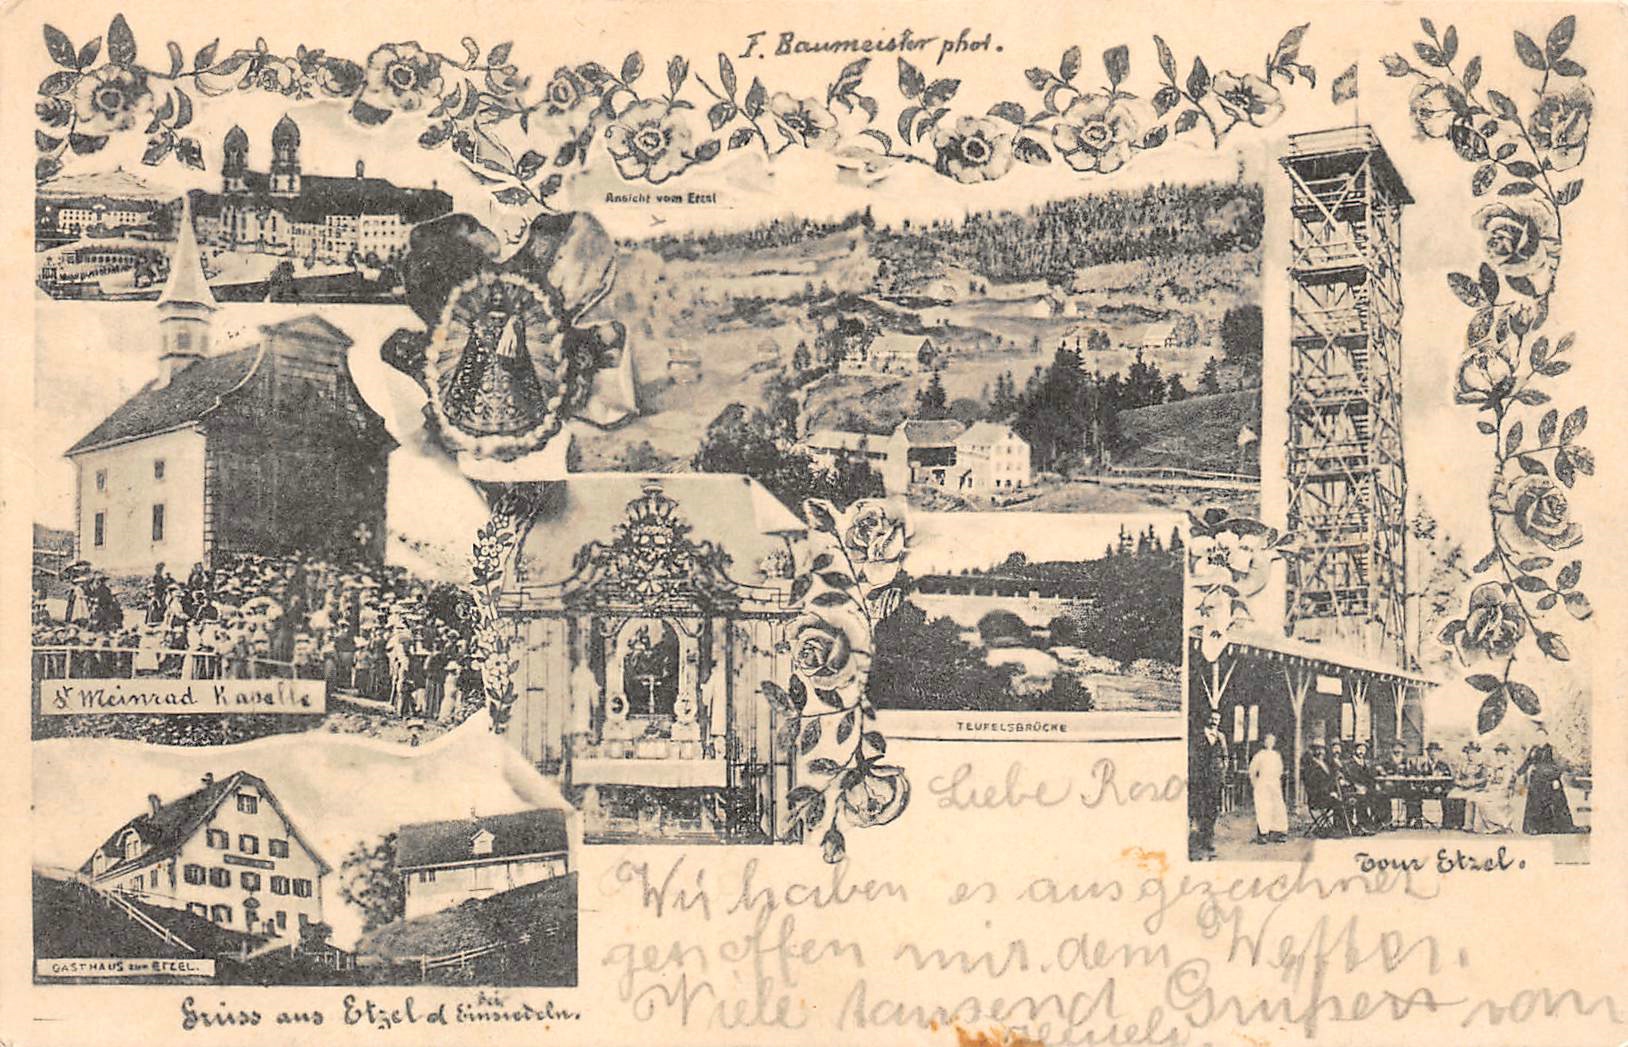 F. Baumeister phot.
Ansicht vom Etzel
St Meinrad Kapelle
TEUFELSBRÜCKE
Liebe Rosa
Tour Etzel.
Wir haben es ausgezeichnet
getroffen mit dem Wetter.
GASTHAUS zum ETZEL.
Gruss aus Etzel bei Einsiedeln.
Viele tausend Grüsse von